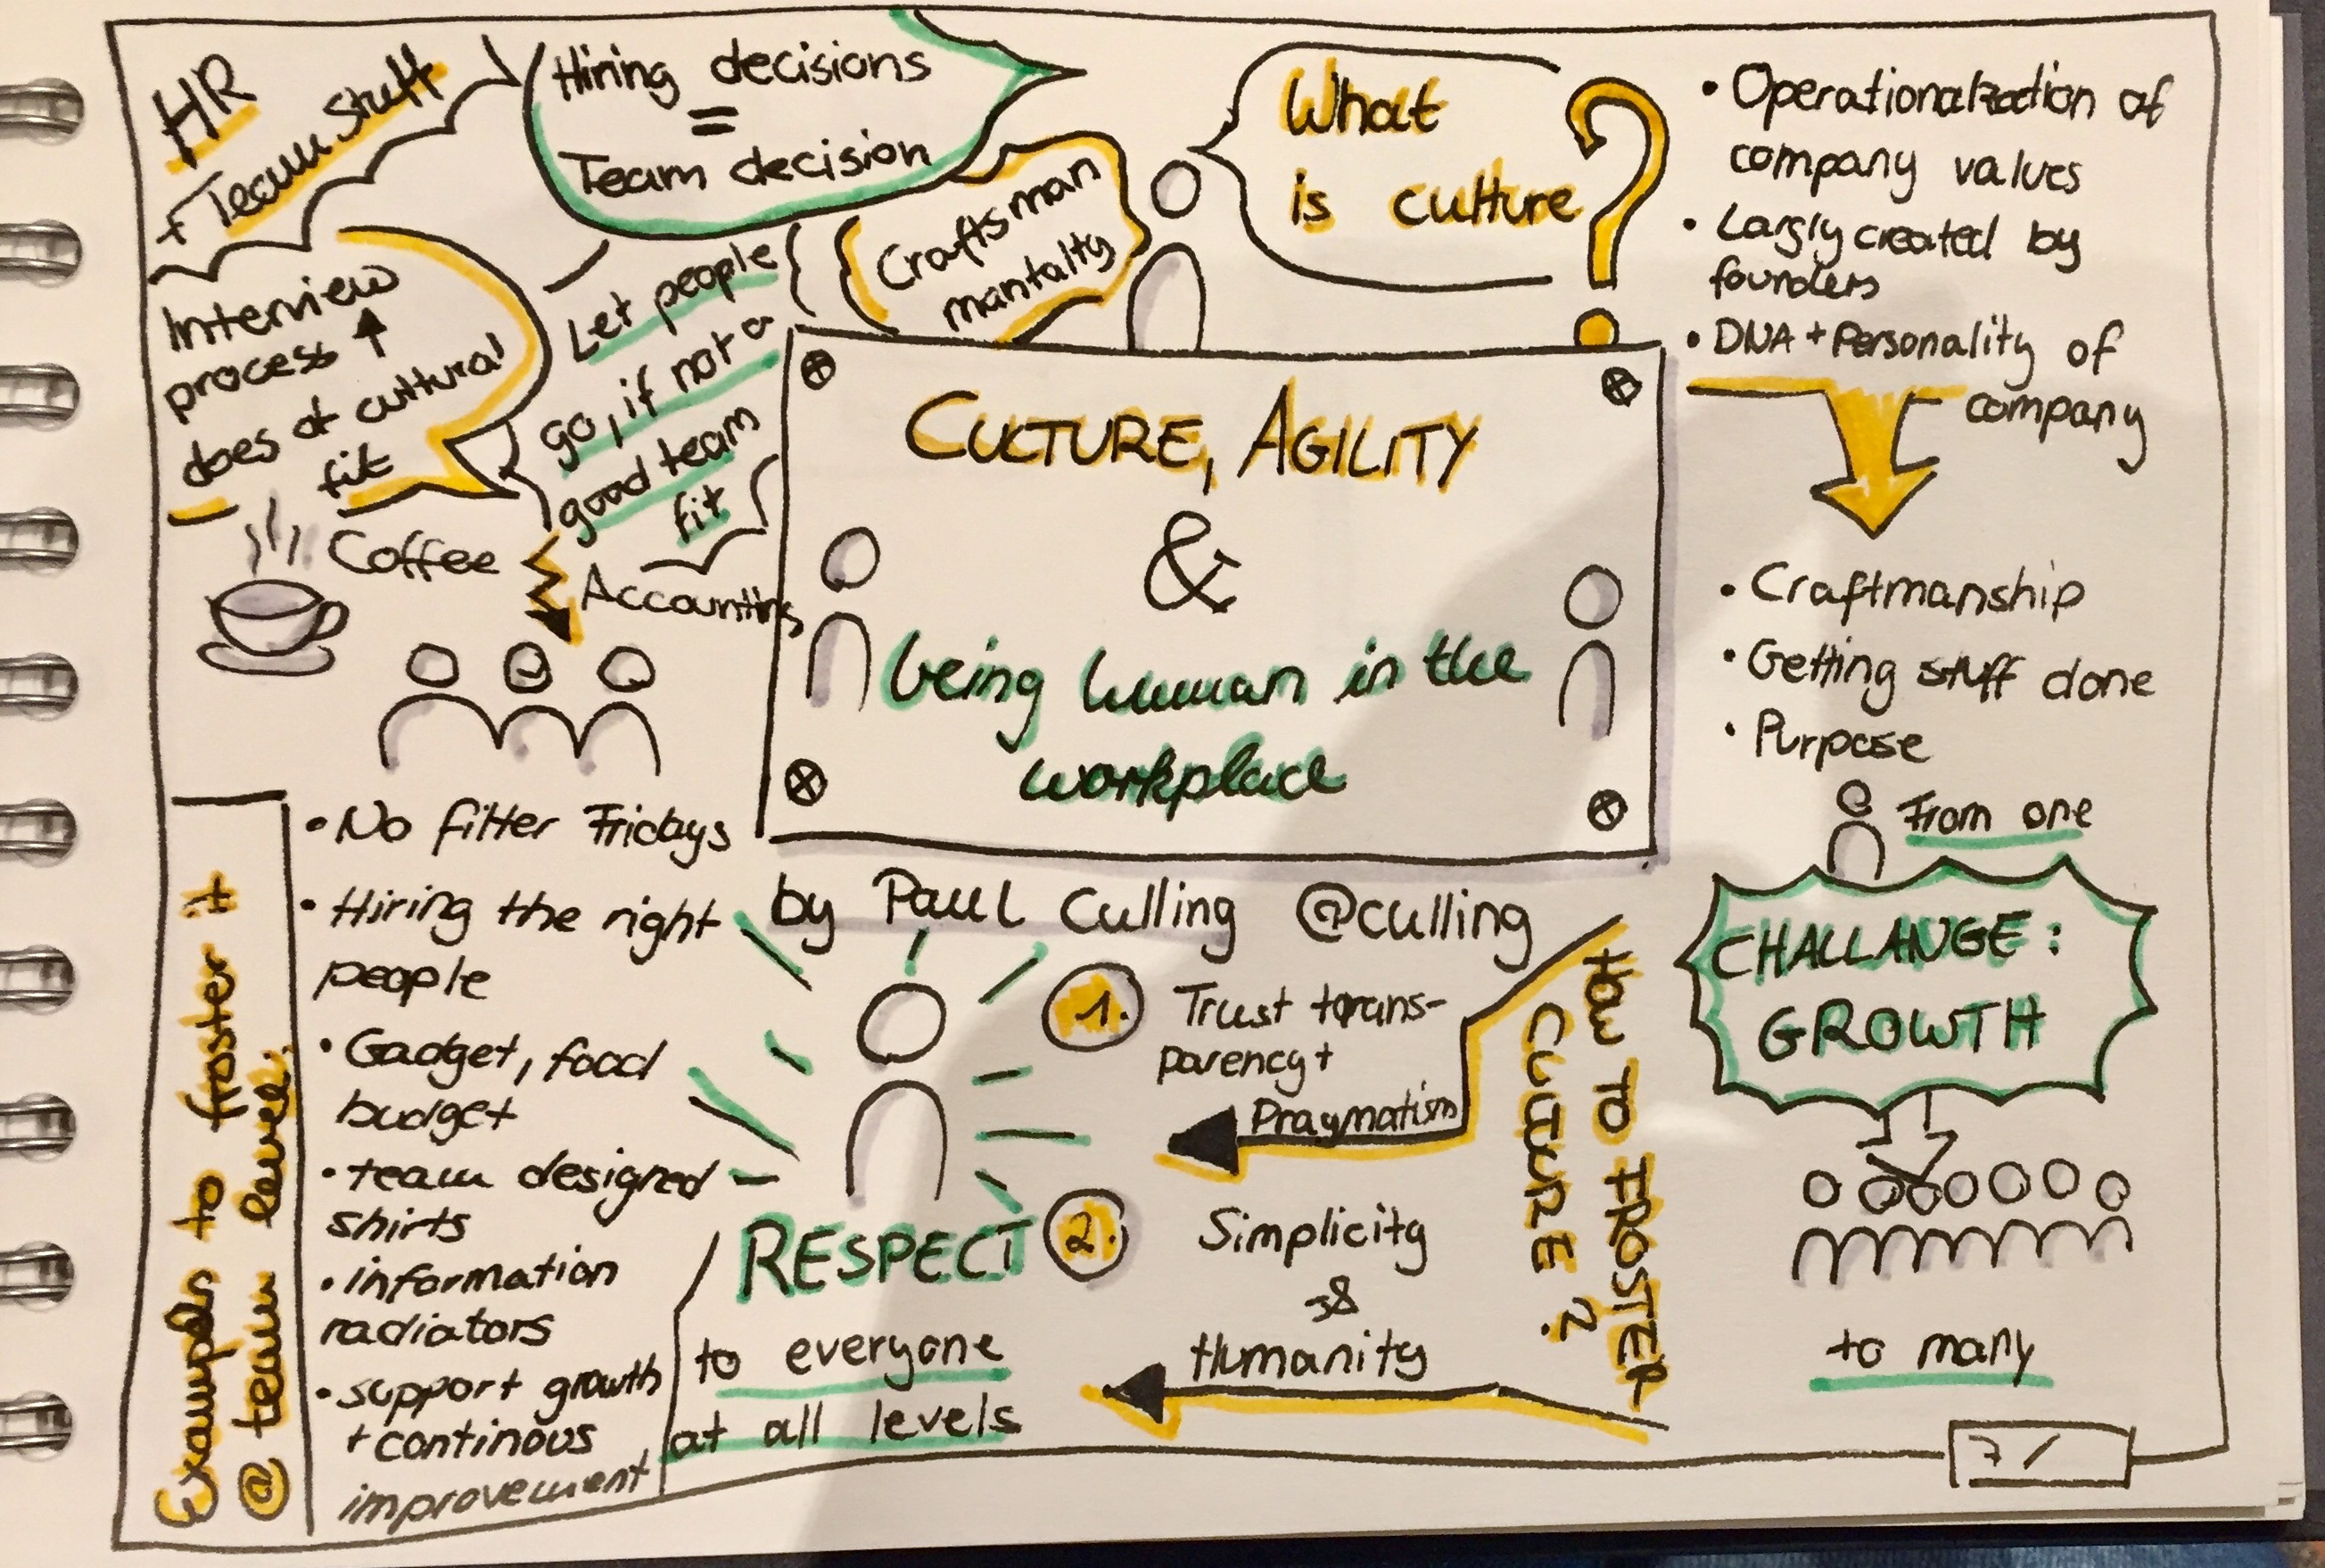 HR
+ Team stuff
Hiring decisions
=
Team decision
What
is culture ?
• Operationalization of
company values
• Largly created by
founders
• DNA + Personality of
company
Craftsman
mantalty
Interview
process
does at cultural
fit
Let people
go, if not a
good team
fit
Coffee
Accounting
CULTURE, AGILITY
&
being human in the
workplace
• Craftmanship
• Getting stuff done
• Purpose
From one
CHALLANGE:
GROWTH
to many
by PAUL Culling @culling
HOW TO FROSTER
CULTURE ?
1. Trust trans-
parency +
Pragmatism
2. Simplicity
&
Humanity
RESPECT
to everyone
at all levels
Exampels to froster it
@ team level:
• No filter Fridays
• Hiring the right
people
• Gadget, food
budget
• team designed
shirts
• information
radiators
• support growth
+ continous
improvement
7/